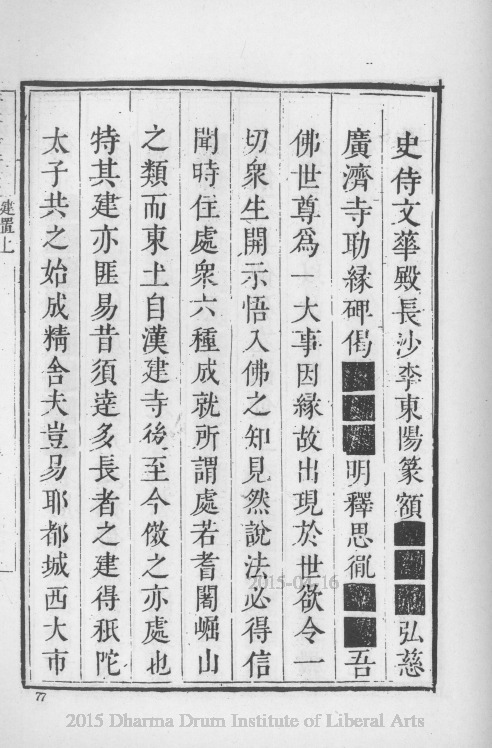 史侍文華殿長沙李東陽篆額■■■弘慈
廣濟寺助縁碑偈■■■明釋思胤■■吾
佛世尊爲一大事因縁故出現於世欲令一
切衆生開示悟入佛之知見然說法必得信
聞時住處衆六種成就所謂處若耆闍崛山
之類而東土自漢建寺後至今倣之亦處也
特其建亦匪易昔須達多長者之建得秖陀
太子共之始成精舍夫豈易耶都城西大市
建置上
77
2015-04-16
2015 Dharma Drum Institute of Liberal Arts